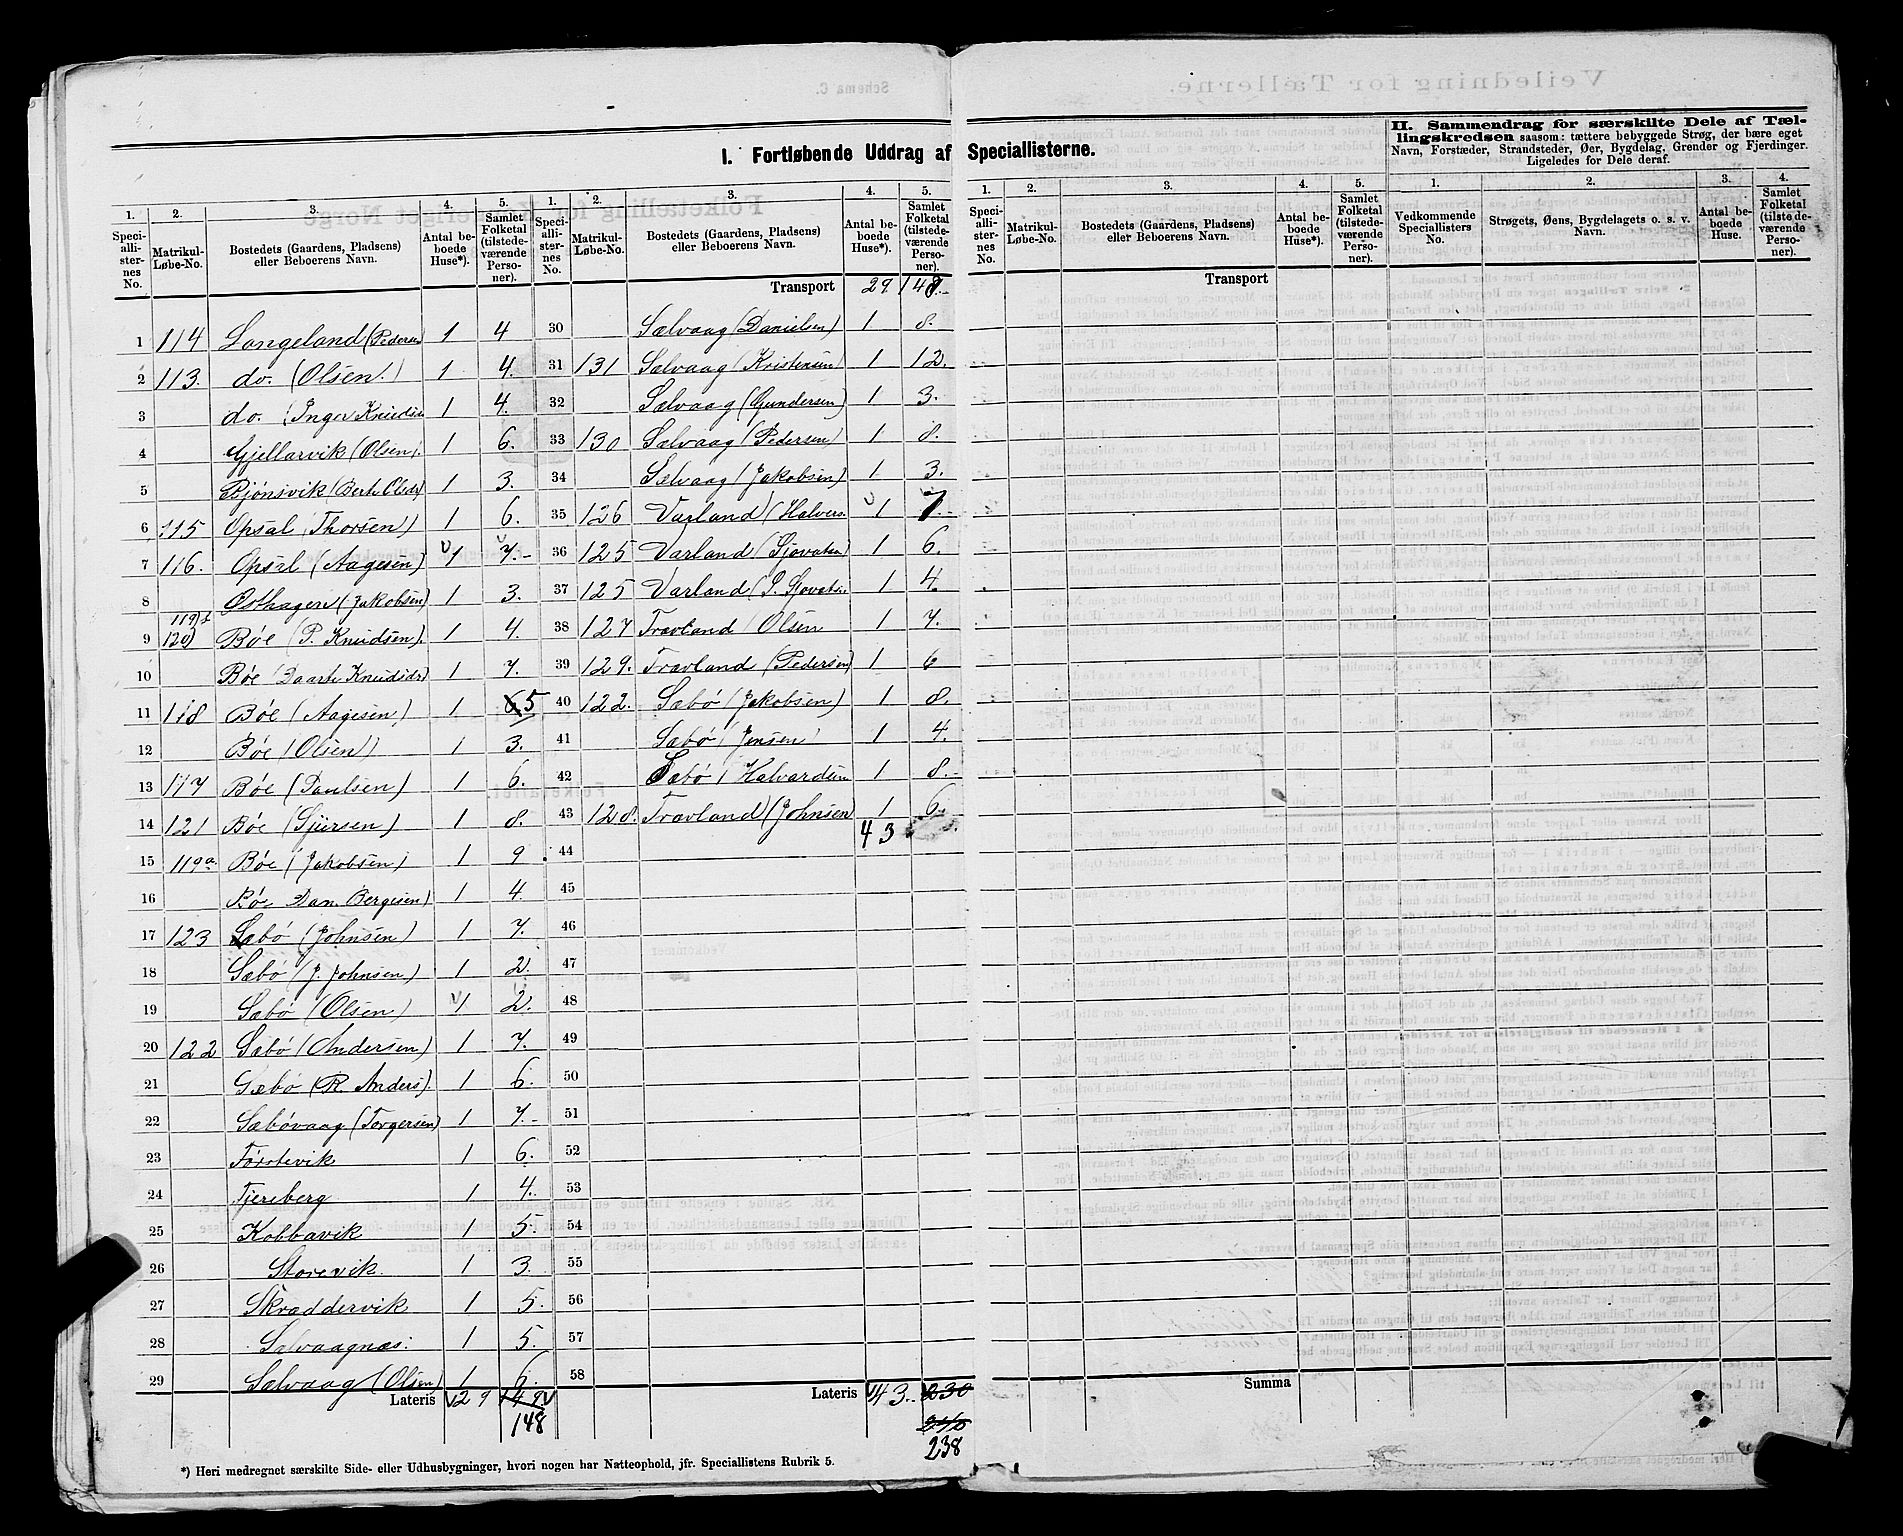 I. Fortløbende Uddrag af Speciallisterne.
II. Sammendrag for særskilte Dele af Tæl-
lingskredsen saasom: tættere bebyggede Strøg, der bære eget
Navn, Forstæder, Strandsteder, Øer, Bygdelag, Grender og Fjerdinger.
Ligeledes for Dele deraf.
1. 2. 3. 4. 5. 1. 2. 3. 4. 5.
Speci-alli-ster-nes No. Matrikul-Løbe-No. Bostedets (Gaardens, Pladsens) eller Beboerens Navn. Antal be-boede Huse*). Samlet Folketal (tilstede-værende Perso-ner).
Transport 29 148.
1 114 Langeland (Pedersen 1 4
2 113. do. (Olsen.) 1 4.
3 do. (Inger Knudsd 1 4.
4 Gjellarvik (Olsen). 1 6.
5 Bjónsvik (Berte Olsdr) 1 3.
6 115 Opsal (Thorsen) 1 6.
7 116. Opsal (Aagesen) 1 7.-
8 Østhagen (Jakobsen) 1 3.
9 119b 120) Bøe (P. Knudsen). 1 4.
10 Bøe (Daarte Knudsdr) 1 7.
11 118 Bøe (Aagesen) 1 6 5
12 Bøe (Olsen) 1 3.
13 117 Bøe (Paulsen) 1 6.
14 121 Bøe (Sjursen) 1 8.
15 119a. Bøe (Jakobsen) 1 9
16 Bøe Dan. Bergesen) 1 4.
17 123 Sæbö (Johnsen) 1 7.
18 Sæbö (J. Johnsen) 1 2.
19 Sæbö (Olsen) 1 2.
20 122 Sæbö (Andersen) 1 7.
21 Sæbö (R. Anders). 1 6.
22 Sæbövaag (Torgersen) 1 7.-
23 Tørstevik 1 6.
24 Tjereberg 1 4.
25 Kobbavik 1 5.
26 Storevik. 1 3.
27 Skraddervik 1 5.
28 Salvaagnæs. 1 5.
29 Sælvaag (Olsen) 1 6.
Lateris 29 149 148
30 Sælvaag (Danielsen) 1 8.
31 131 Sælvaag (Kristensen) 1 12.
32 Sælvaag (Gundersen) 1 3.
33 130 Sælvaag (Pedersen) 1 8.
34 Sælvaag (Jakobsen) 1 3.
35 126 Varland (Halvers. 1 7.-
36 125 Varland (Sjovatsn) 1 6.
37 125 Varland (S. Sjovats. 1 4.
38 127 Travland (Olsen 1 7.
39 129. Travland (Pedersen) 1 6
40 122. Sæbö (Jakobsen) 1 8.
41 Sæbö (Jensen) 1 4.
42 Sæbö (Halvardsen 1 8.-
43 128. Travland (Johnsen) 1 6.
43
44
45
46
47
48
49
50
51
52
53
54
55
56
57
58
Lateris 43. 230
240
238
*) Heri medregnet særskilte Side- eller Udhusbygninger, hvori nogen har Natteophold, jfr. Speciallistens Rubrik 5.
1. 2. 3. 4. 5. 1. 2. 3. 4.
Speci-alli-ster-nes No. Matrikul-Løbe-No. Bostedets (Gaardens, Pladsens) eller Beboerens Navn. Antal be-boede Huse*). Samlet Folketal (tilstede-værende Perso-ner).
Vedkommende Speciallisters No. Strøgets, Øens, Bygdelagets o. s. v. Navn. Antal be-boede Huse. Samlet Folketal (tilstede-værende Perso-ner).
Transport
Summa